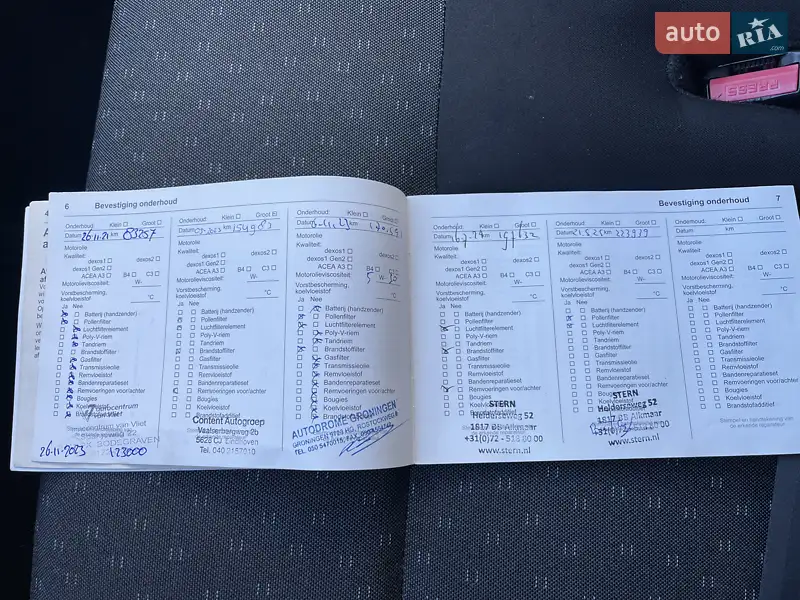 auto RIA .com
PRESS
6 Bevestiging onderhoud
Onderhoud: Klein Groot
Datum 26-11-21 km 83257
Motorolie
Kwaliteit:
dexos1 dexos2
dexos1 Gen2
ACEA A3 B4 C3
Motorolieviscositeit: W-
Vorstbescherming,
koelvloeistof °C
Ja Nee
Batterij (handzender)
Pollenfilter
Luchtfilterelement
Poly-V-riem
Tandriem
Brandstoffilter
Gasfilter
Transmissieolie
Remvloeistof
Bandenreparatieset
Remvoeringen voor/achter
Bougies
Koelvloeistof
Brandstofadditief
Autocentrum
26-11-2023 123000
Onderhoud: Klein Groot
Datum km 154983
Motorolie
Kwaliteit:
dexos1 dexos2
dexos1 Gen2
ACEA A3 B4 C3
Motorolieviscositeit: W-
Vorstbescherming,
koelvloeistof °C
Ja Nee
Batterij (handzender)
Pollenfilter
Luchtfilterelement
Poly-V-riem
Tandriem
Brandstoffilter
Gasfilter
Transmissieolie
Remvloeistof
Bandenreparatieset
Remvoeringen voor/achter
Bougies
Koelvloeistof
Brandstofadditief
Content Autogroep
Vaalserbergweg 2b
5628 CJ Eindhoven
Tel. 040
Onderhoud: Klein Groot
Datum km
Motorolie
Kwaliteit:
dexos1 dexos2
dexos1 Gen2
ACEA A3 B4 C3
Motorolieviscositeit: 5 W- 30
Vorstbescherming,
koelvloeistof °C
Ja Nee
Batterij (handzender)
Pollenfilter
Luchtfilterelement
Poly-V-riem
Tandriem
Brandstoffilter
Gasfilter
Transmissieolie
Remvloeistof
Bandenreparatieset
Remvoeringen voor/achter
Bougies
Koelvloeistof
Brandstofadditief
AUTODROME GRONINGEN
Bevestiging onderhoud 7
Onderhoud: Klein Groot
Datum km
Motorolie
Kwaliteit:
dexos1 dexos2
dexos1 Gen2
ACEA A3 B4 C3
Motorolieviscositeit: W-
Vorstbescherming,
koelvloeistof °C
Ja Nee
Batterij (handzender)
Pollenfilter
Luchtfilterelement
Poly-V-riem
Tandriem
Brandstoffilter
Gasfilter
Transmissieolie
Remvloeistof
Bandenreparatieset
Remvoeringen voor/achter
Bougies
Koelvloeistof
STERN
Helderseweg 52
1817 BB Alkmaar
+31(0)72 - 518 00 00
www.stern.nl
Onderhoud: Klein Groot
Datum 21.5.25 km 223939
Motorolie
Kwaliteit:
dexos1 dexos2
dexos1 Gen2
ACEA A3 B4 C3
Motorolieviscositeit: W-
Vorstbescherming,
koelvloeistof °C
Ja Nee
Batterij (handzender)
Pollenfilter
Luchtfilterelement
Poly-V-riem
Tandriem
Brandstoffilter
Gasfilter
Transmissieolie
Remvloeistof
Bandenreparatieset
Remvoeringen voor/achter
Bougies
Koelvloeistof
Brandstofadditief
STERN
Helderseweg 52
1817 BB Alkmaar
www.stern.nl
Onderhoud: Klein Groot
Datum km
Motorolie
Kwaliteit:
dexos1 dexos2
dexos1 Gen2
ACEA A3 B4 C3
Motorolieviscositeit: W-
Vorstbescherming,
koelvloeistof °C
Ja Nee
Batterij (handzender)
Pollenfilter
Luchtfilterelement
Poly-V-riem
Tandriem
Brandstoffilter
Gasfilter
Transmissieolie
Remvloeistof
Bandenreparatieset
Remvoeringen voor/achter
Bougies
Koelvloeistof
Brandstofadditief
Stempel en handtekening van
de erkende reparateur